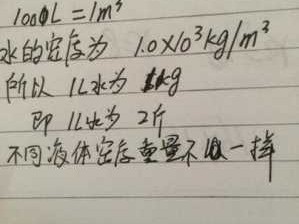 1000L = 1m³
水的密度为 1.0×10³kg/m³
所以 1L水为 1kg
即 1L水为 2斤
不同液体密度重量不一样